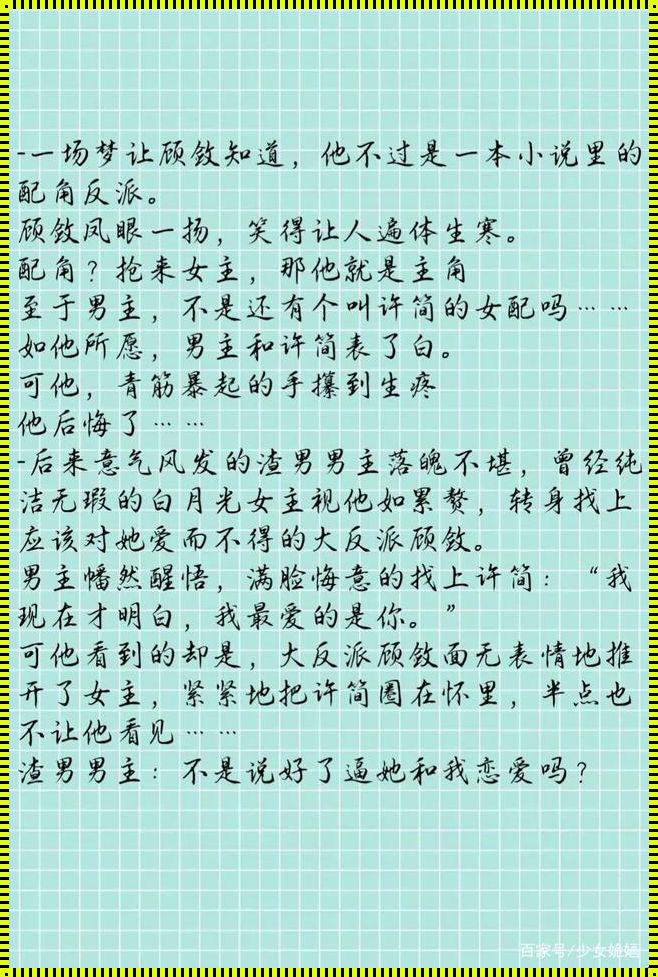 -一场梦让顾敛知道，他不过是一本小说里的
配角反派。
顾敛凤眼一扬，笑得让人遍体生寒。
配角？抢来女主，那他就是主角
至于男主，不是还有个叫许简的女配吗……
如他所愿，男主和许简表了白。
可他，青筋暴起的手攥到生疼
他后悔了……
-后来意气风发的渣男男主落魄不堪，曾经纯
洁无瑕的白月光女主视他如累赘，转身找上
应该对她爱而不得的大反派顾敛。
男主幡然醒悟，满脸悔意的找上许简：“我
现在才明白，我最爱的是你。”
可他看到的却是，大反派顾敛面无表情地推
开了女主，紧紧地把许简圈在怀里，半点也
不让他看见……
渣男男主：不是说好了逼她和我恋爱吗？
百家号/少女姽婳